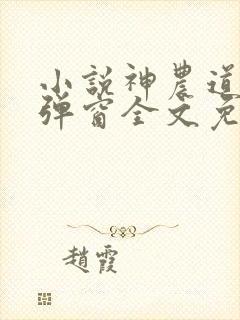 小說神農道
彈窗全文免
趙霞